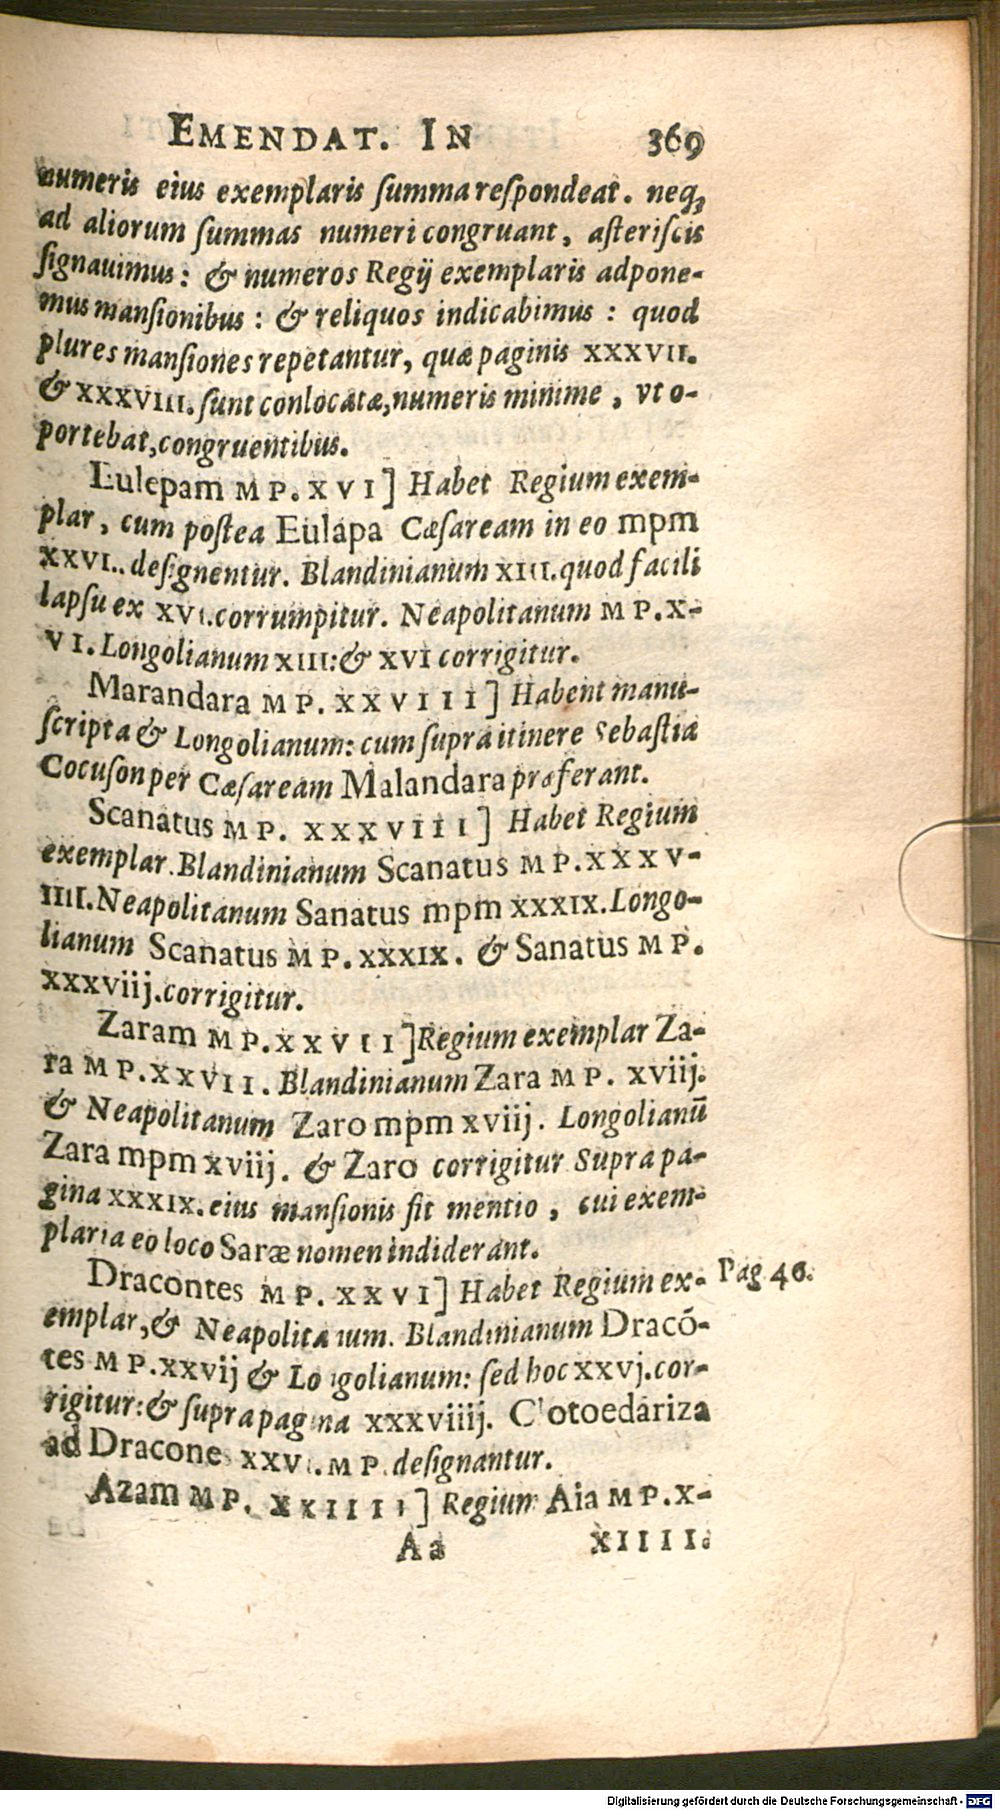 EMENDAT. IN 369
numeris eius exemplaris summa respondeat. neq;
ad aliorum summas numeri congruant, asteriscis
signauimus: & numeros Regij exemplaris adpone-
mus mansionibus: & reliquos indicabimus: quod
plures mansiones repetantur, quæ paginis XXXVII.
& XXXVIII. sunt conlocatæ, numeris minime, vt o-
portebat, congruentibus.
Eulepam MP. XVI] Habet Regium exem-
plar, cum postea Eulapa Cæsaream in eo mpm
XXVI.. designentur. Blandinianum XIII. quod facili
lapsu ex XVI. corrumpitur. Neapolitanum MP. X-
VI. Longolianum XIII: & XVI corrigitur.
Marandara MP. XXVIII] Habent manu-
scripta & Longolianum: cum supra itinere Sebastia
Cocuson per Cæsaream Malandara præferant.
Scanatus MP. XXXVIII] Habet Regium
exemplar. Blandinianum Scanatus MP. XXXV-
IIII. Neapolitanum Sanatus mpm XXXIX. Longo-
lianum Scanatus MP. XXXIX. & Sanatus MP.
XXXviij. corrigitur.
Zaram MP. XXVII] Regium exemplar Za-
ra MP. XXVII. Blandinianum Zara MP. xviij.
& Neapolitanum Zaro mpm xviij. Longolianū
Zara mpm xviij. & Zaro corrigitur Supra pa-
gina XXXIX. eius mansionis fit mentio, cui exem-
plaria eo loco Saræ nomen indiderant.
Dracontes MP. XXVI] Habet Regium ex-
Pag 40.
emplar, & Neapolitanum. Blandinianum Dracō-
tes MP. xxvij & Longolianum: sed hoc xxvj. cor-
rigitur: & supra pagina xxxviiij. Clotoedariza
ad Dracones XXVI. MP. designantur.
Azam MP. XXIIII] Regium Aia MP. X-
Aa XIIII.
Digitalisierung gefördert durch die Deutsche Forschungsgemeinschaft - DFG